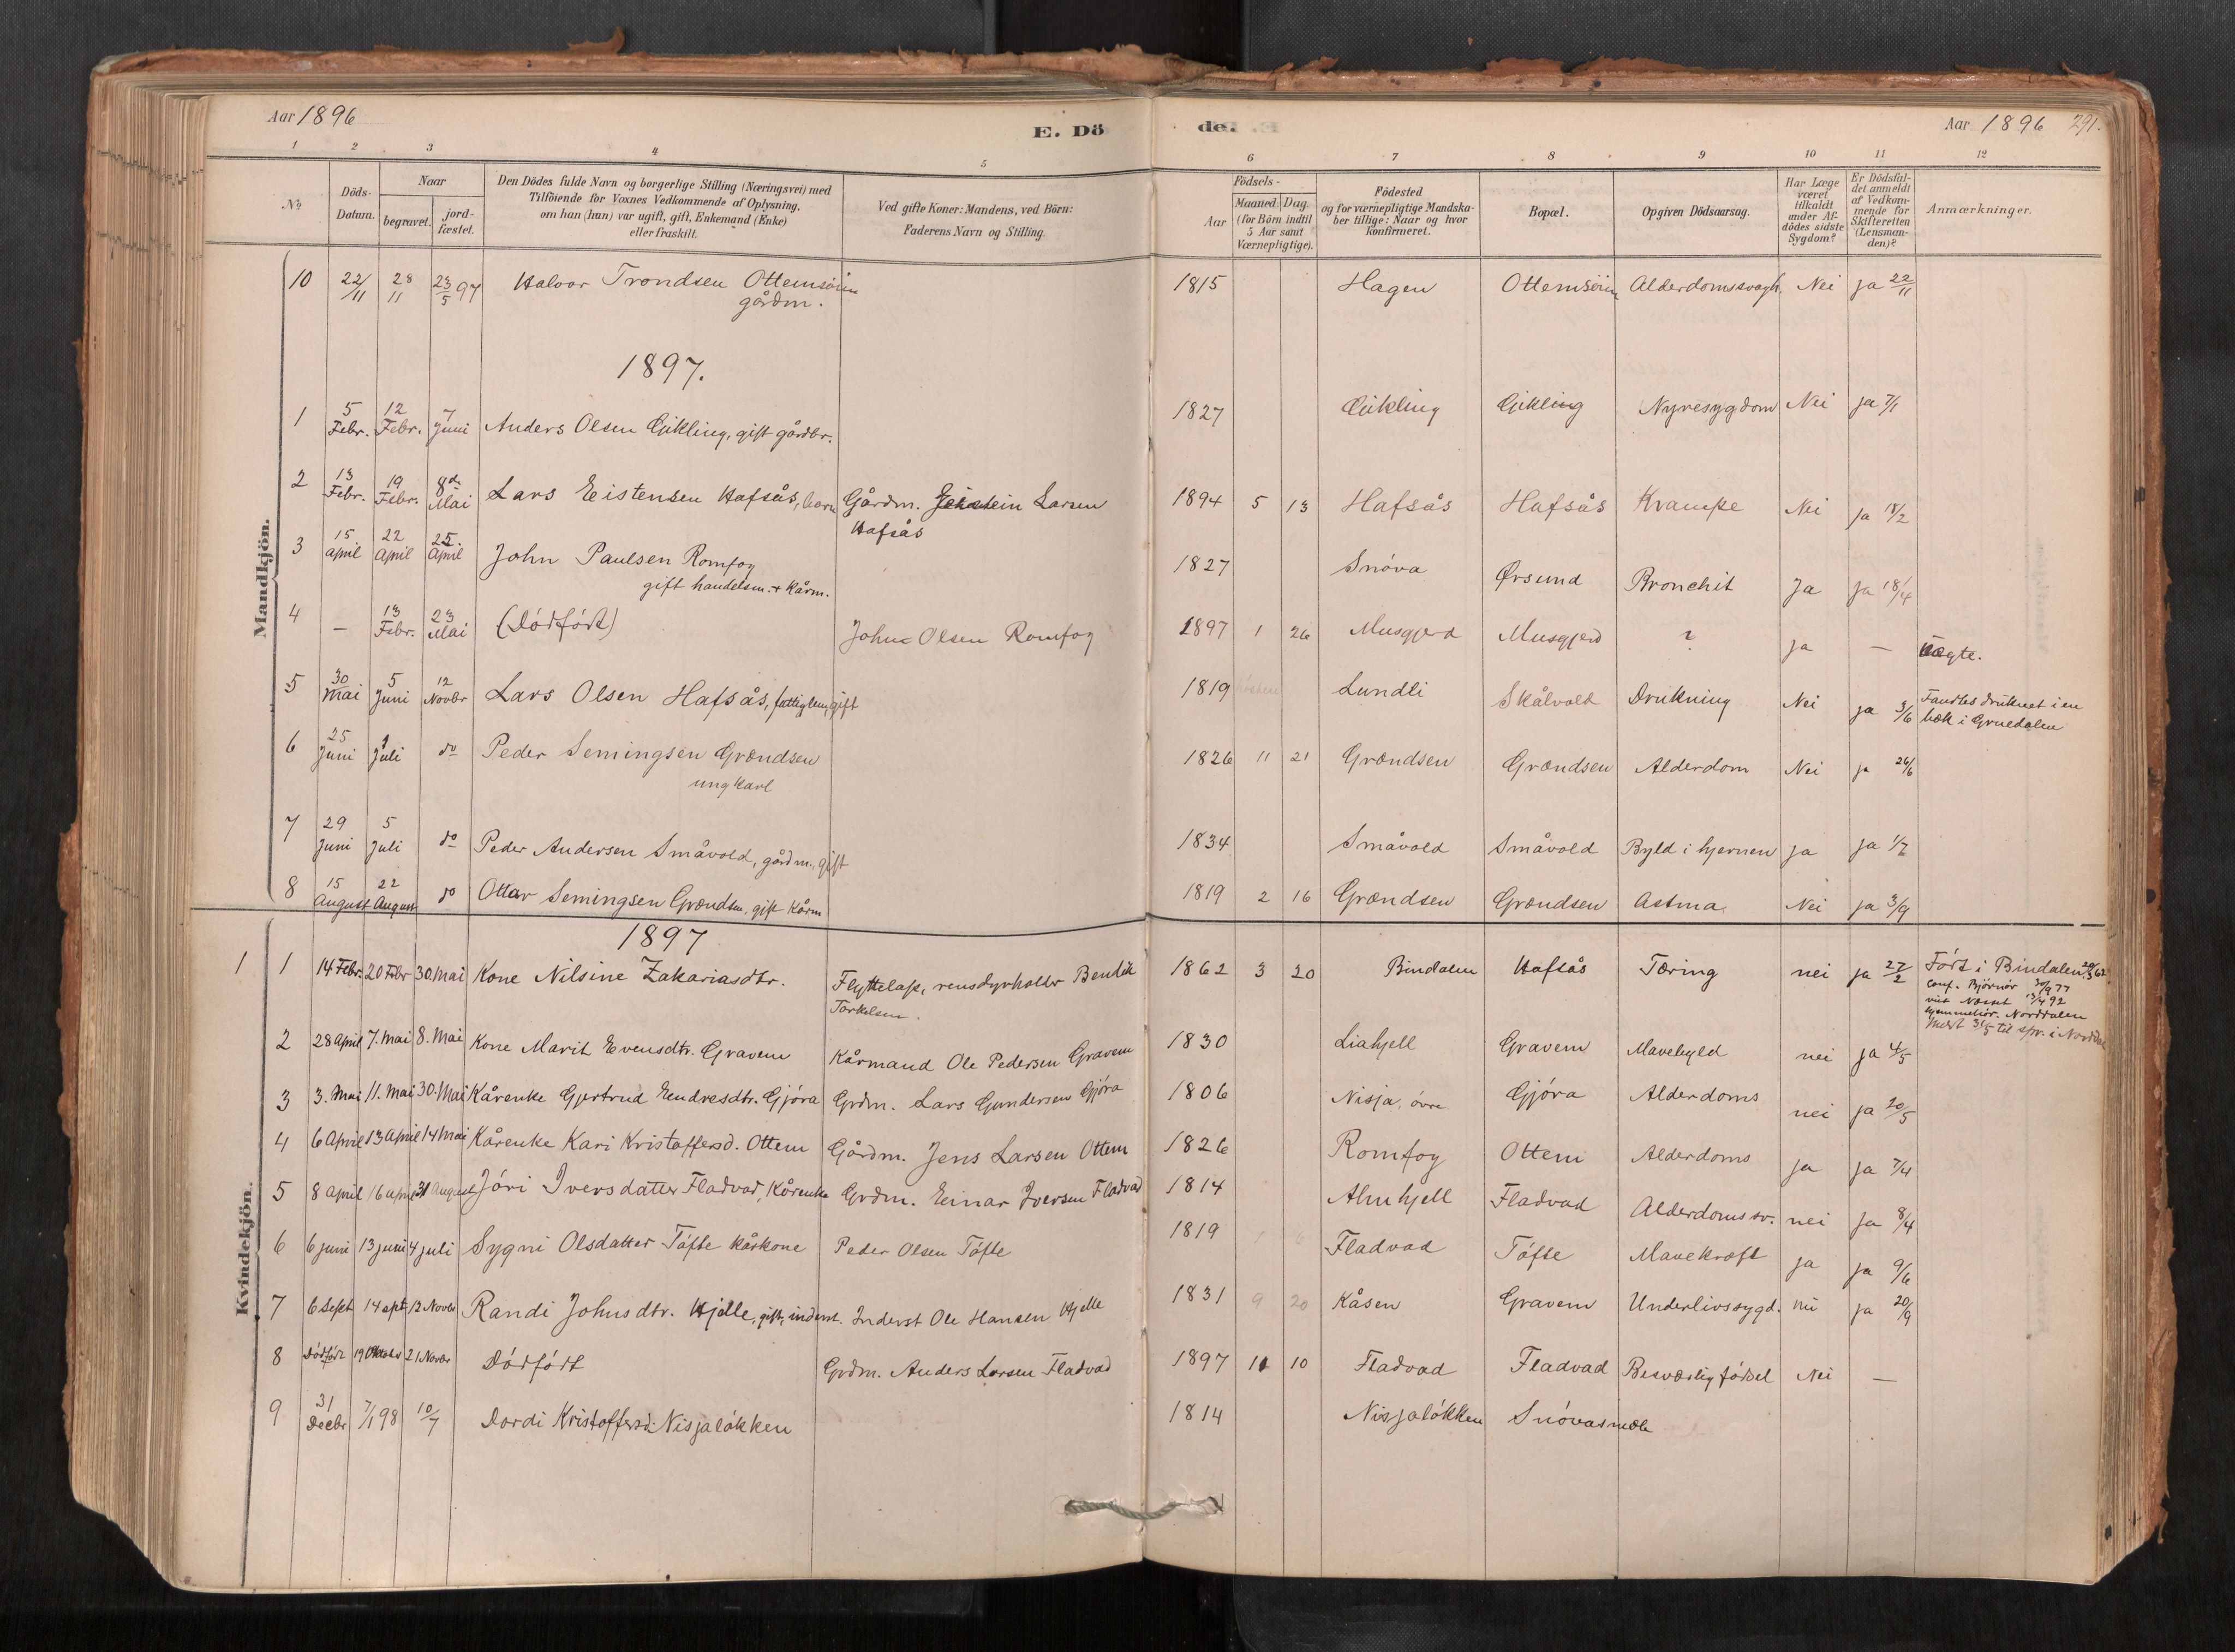 Aar 1896
E. Dö
de.
Aar 1896 291.
1 2 3 4 5 6 7 8 9 10 11 12
No
Döds-Datum.
Naar
begravet.
jord-fæstet.
Den Dödes fulde Navn og borgerlige Stilling (Næringsvei) med
Tilföiende for Voxnes Vedkommende af Oplysning.
om han (hun) var ugift, gift, Enkemand (Enke)
eller fraskilt.
Ved gifte Koner: Mandens, ved Börn:
Faderens Navn og Stilling.
Födsels-
Aar
Maaned. Dag.
(for Börn indtil
5 Aar samt
Værnepligtige).
Födested
og for værnepligtige Mandska-
ber tillige: Naar og hvor
konfirmeret.
Bopæl.
Opgiven Dödsaarsag.
Har Læge
været
tilkaldt
under Af-
dödes sidste
Sygdom?
Er Dödsfal-
det anmeldt
af Vedkom-
mende for
Skifteretten
(Lensman-
den)?
Anmærkninger.
Mandkjön.
10 22/11 28/11 23/5 97 Halvor Trondsen Ottemsöien gårdm. 1815 Hagen Ottemsöien Alderdomssvagh. Nei ja 22/11
1897.
1 5 Febr. 12 Febr. 7 Juni Anders Olsen Gikling, gift gårdbr. 1827 Gikling Gikling Nyresygdom Nei ja 7/1
2 13 Febr. 19 Febr. 8de Mai Lars Eistensen Hafsås, barn Gårdm. Eistein Larsen Hafsås 1894 5 13 Hafsås Hafsås Krampe Nei ja 18/2
3 15 April 22 April 25. April John Paulsen Romfog gift handelsm. + Kårm. 1827 Snöva Ørsund Bronchit Ja ja 18/4
4 — 13 Febr. 23 Mai (Dödfödt) John Olsen Romfog 1897 1 26 Musgjerd Musgjerd ? ja — uægte.
5 30 Mai 5 Juni 12 Novbr Lars Olsen Hafsås, fattiglem, gift 1819 Lundli Skålvold Drukning Nei ja 3/6 Fandtes druknet i en bæk i Gruedalen
6 25 Juni 1 Juli do Peder Semingsen Grændsen ungkarl 1826 11 21 Grændsen Grændsen Alderdom Nei ja 26/6
7 29 Juni 5 Juli do Peder Andersen Småvold, gårdm., gift 1834 Småvold Småvold Byld i hjernen ja ja 1/7
8 15 August 22 August do Ottar Semingsen Grændsen, gift Kårm 1819 2 16 Grændsen Grændsen Astma Nei ja 3/9
1897
Kvindekjön.
1 1 14 Febr. 20 Febr 30. Mai Kone Nilsine Zakariasdtr. Flyttelap, rensdyrholder Bendik Torkelsen. 1862 3 20 Bindalen Hafsås Tæring nei ja 27/2 Födt i Bindalen 20/3 62
conf. Björnör 30/9 77
viet Næsset 13/4 92
hjemmehör. Norddalen
2 28 April 7. Mai 8. Mai Kone Marit Evensdtr. Gravem Kårmand Ole Pedersen Gravem 1830 Liahjell Gravem Mavebyld nei ja 4/5
3 3. Mai 11. Mai 30. Mai Kårenke Gjertrud Endresdtr. Gjöra Grdm. Lars Gundersen Gjöra 1806 Nisja, övre Gjöra Alderdoms nei ja 20/5
4 6 April 13 April 14 Mai Kårenke Kari Kristoffersd. Ottem Gårdm. Jens Larsen Ottem 1826 Romfog Ottem Alderdoms ja ja 7/4
5 8 April 16 April 31 August Jöri Iversdatter Fladvad, Kårenke Grdm. Einar Iversen Fladvad 1814 Almhjell Fladvad Alderdomssv. nei ja 8/4
6 6 juni 13 juni 4 juli Sygni Olsdatter Töfte kårkone Peder Olsen Töfte 1819 Fladvad Töfte Mavekræft ja ja 9/6
7 6 Sept 14 spt 13 Novbr Randi Johnsdtr. Hjelle, gift, inderst. Inderst Ole Hansen Hjelle 1831 9 20 Kåsen Gravem Underlivssygd. nei ja 20/9
8 Dödfödt 19 Oktober 21 Novbr Dödfödt Grdm. Anders Larsen Fladvad 1897 10 10 Fladvad Fladvad Besværlig födsel Nei —
9 31 Decbr 7/1 98 10/7 Dordi Kristoffersd. Nisjalökken 1814 Nisjalökken Snövasmæle